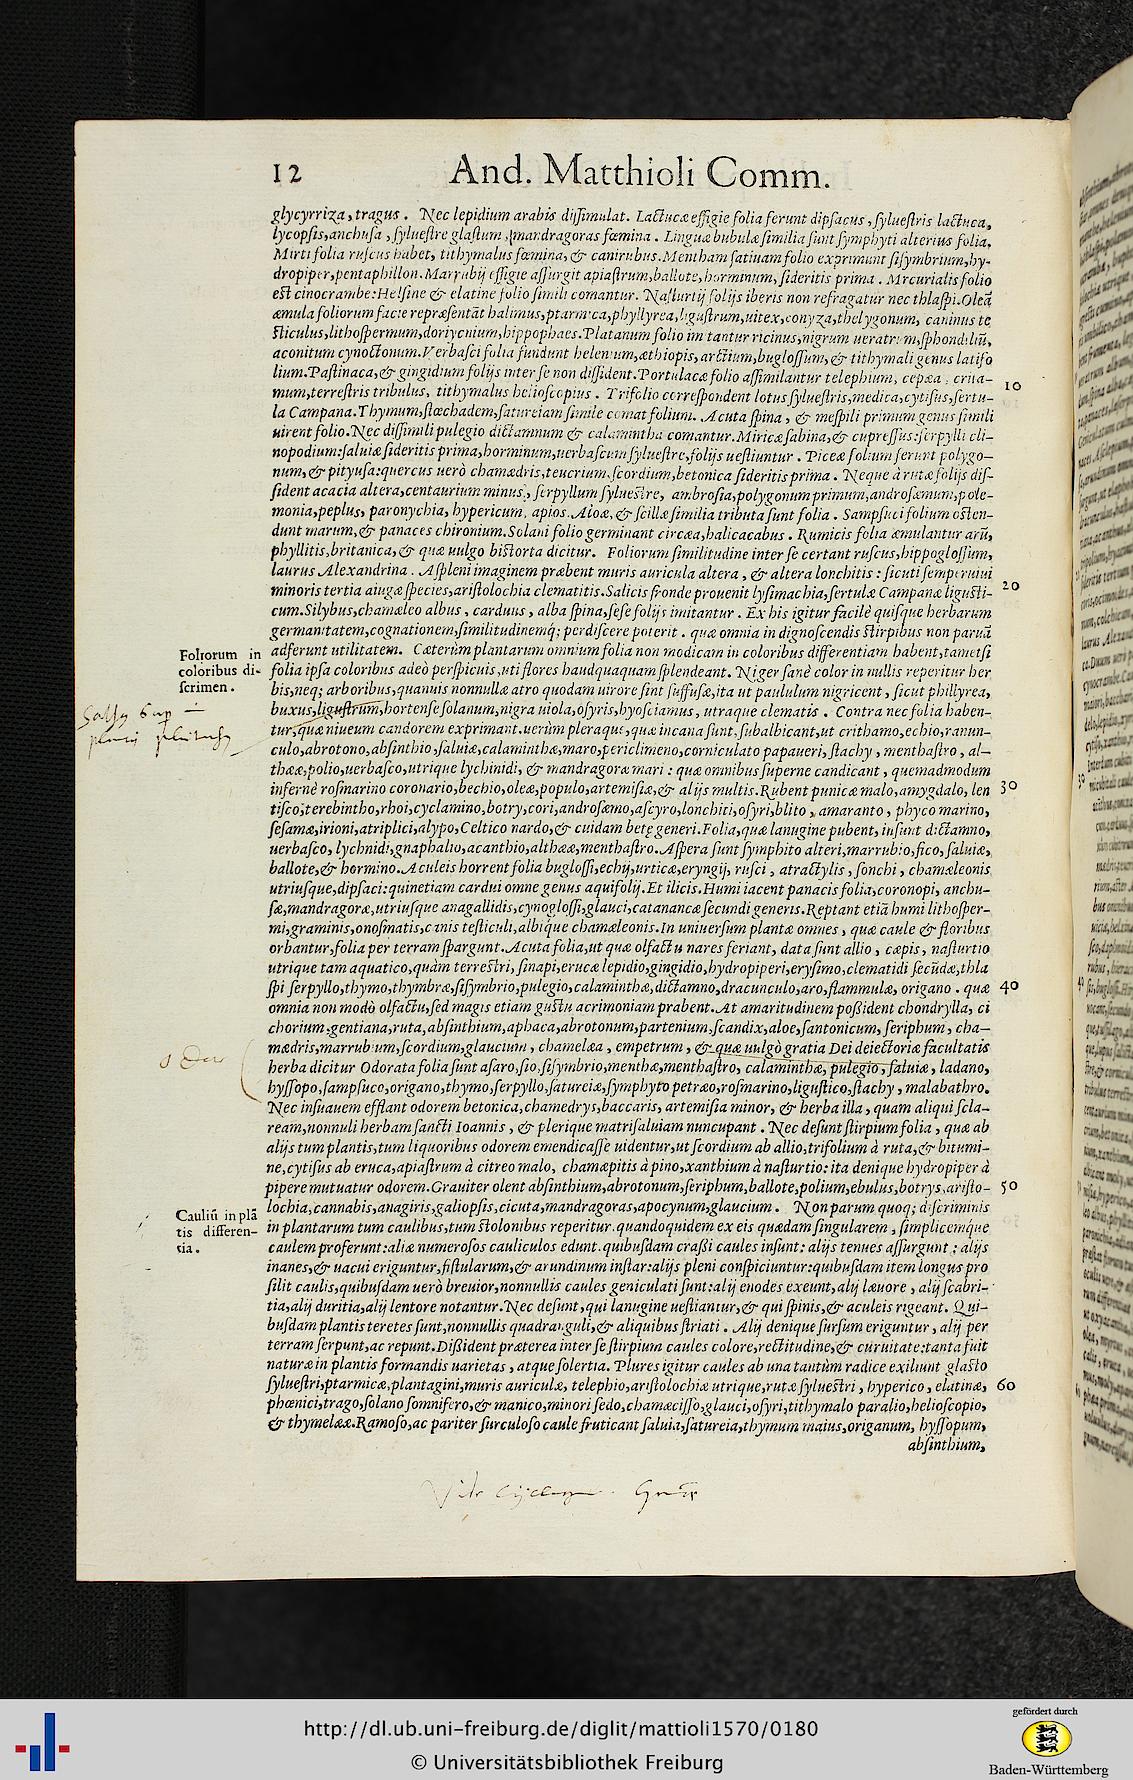 12 And. Matthioli Comm.
glycyrriza, tragus. Nec lepidium arabis dissimulat. Lactucæ effigie folia ferunt dipsacus, syluestris lactuca,
lycopsis, anchusa, syluestre glastum, mandragoras fœmina. Linguæ bubulæ similia sunt symphyti alterius folia.
Mirti folia ruscus habet, tithymalus fœmina, & canirubus. Mentham satiuam folio exprimunt sisymbrium, hy-
dropiper, pentaphillon. Marrubij effigie assurgit apiastrum, ballote, horminum, sideritis prima. Mrcurialis folio
est cinocrambe: Helsine & elatine folio simili comantur. Nasturtij folijs iberis non refragatur nec thlaspi. Oleā
æmula foliorum facie repræsentāt halimus, ptarmica, phyllyrea, ligustrum, uitex, conyza, thelygonum, caninus te
sticulus, lithospermum, doriycnium, hippophaes. Platanum folio imitantur ricinus, nigrum ueratrum, sphondiliū,
aconitum cynoctonum. Verbasci folia fundunt helenium, æthiopis, arctium, buglossum, & tithymali genus latifo
lium. Pastinaca, & gingidium folijs inter se non dissident. Portulacæ folio assimilantur telephium, cepæa, crita-
mum, terrestris tribulus, tithymalus helioscopius. Trifolio correspondent lotus syluestris, medica, cytisus, sertu- 10
la Campana. Thymum, stœchadem, satureiam simile comat folium. Acuta spina, & mespili primum genus simili
uirent folio. Nec dissimili pulegio dictamnum & calamintha comantur. Miricæ sabina, & cupressus: serpylli cli-
nopodium: saluiæ sideritis prima, horminum, uerbascum syluestre, folijs uestiuntur. Piceæ folium ferunt polygo-
num, & pityusa: quercus uerò chamædris, teucrium, scordium, betonica sideritis prima. Neque à rutæ folijs dis-
sident acacia altera, centaurium minus, serpyllum syluestre, ambrosia, polygonum primum, androsæmum, pole-
monia, peplus, paronychia, hypericum, apios. Aloæ, & scillæ similia tributa sunt folia. Sampsuci folium osten-
dunt marum, & panaces chironium. Solani folio germinant circæa, halicacabus. Rumicis folia æmulantur arū,
phyllitis, britanica, & quæ uulgo bistorta dicitur. Foliorum similitudine inter se certant ruscus, hippoglossum,
laurus Alexandrina. Aspleni imaginem præbent muris auricula altera, & altera lonchitis: sicuti semperuiui
minoris tertia aiugæ species, aristolochia clematitis. Salicis fronde prouenit lysimachia, sertulæ Campanæ ligusti- 20
cum. Silybus, chamæleo albus, carduus, alba spina, sese folijs imitantur. Ex his igitur facilè quisque herbarum
germanitatem, cognationem, similitudinemq; perdiscere poterit. quæ omnia in dignoscendis stirpibus non paruā
Foliorum in coloribus discrimen.
adferunt utilitatem. Cæterùm plantarum omnium folia non modicam in coloribus differentiam habent, tametsi
folia ipsa coloribus adeò perspicuis, uti flores haudquaquam splendeant. Niger sanè color in nullis reperitur her
bis, neq; arboribus, quanuis nonnullæ atro quodam uirore sint suffusæ, ita ut paululum nigricent, sicut phillyrea,
buxus, ligustrum, hortense solanum, nigra uiola, osyris, hyosciamus, utraque clematis. Contra nec folia haben-
tur, quæ niueum candorem exprimant. uerùm pleraque, quæ incana sunt, subalbicant, ut crithamo, echio, ranun-
culo, abrotono, absinthio, saluiæ, calaminthæ, maro, periclimeno, corniculato papaueri, stachy, menthastro, al-
thææ, polio, uerbasco, utrique lychinidi, & mandragoræ mari: quæ omnibus superne candicant, quemadmodum
infernè rosmarino coronario, bechio, oleæ, populo, artemisiæ, & alijs multis. Rubent punicæ malo, amygdalo, len 30
tisco, terebintho, rhoi, cyclamino, botry, cori, androsæmo, ascyro, lonchiti, osyri, blito, amaranto, phyco marino,
sesamæ, irioni, atriplici, alypo, Celtico nardo, & cuidam betę generi. Folia, quæ lanugine pubent, insunt dictamno,
uerbasco, lychnidi, gnaphalio, acanthio, althææ, menthastro. Aspera sunt symphito alteri, marrubio, fico, saluiæ,
ballote, & hormino. Aculeis horrent folia buglossi, echij, urticæ, eryngij, rusci, atractylis, sonchi, chamæleonis
utriusque, dipsaci: quinetiam cardui omne genus aquifolij. Et ilicis. Humi iacent panacis folia, coronopi, anchu-
sæ, mandragoræ, utriusque anagallidis, cynoglossi, glauci, catanancæ secundi generis. Reptant etiā humi lithosper-
mi, graminis, onosmatis, canis testiculi, albique chamæleonis. In uniuersum plantæ omnes, quæ caule & floribus
orbantur, folia per terram spargunt. Acuta folia, ut quæ olfactu nares feriant, data sunt allio, cæpis, nasturtio
utrique tam aquatico, quàm terrestri, sinapi, erucæ lepidio, gingidio, hydropiperi, erysimo, clematidi secūdæ, thla
spi serpyllo, thymo, thymbræ, sisymbrio, pulegio, calaminthæ, dictamno, dracunculo, aro, flammulæ, origano. quæ 40
omnia non modò olfactu, sed magis etiam gustu acrimoniam præbent. At amaritudinem poßident chondrylla, ci
chorium, gentiana, ruta, absinthium, aphaca, abrotonum, partenium, scandix, aloe, santonicum, seriphum, cha-
mædris, marrubium, scordium, glaucium, chamelæa, empetrum, & quæ uulgò gratia Dei deiectoriæ facultatis
herba dicitur Odorata folia sunt asaro, sio, sisymbrio, menthæ, menthastro, calaminthæ, pulegio, saluiæ, ladano,
hyssopo, sampsuco, origano, thymo, serpyllo, satureiæ, symphyto petræo, rosmarino, ligustico, stachy, malabathro.
Nec insuauem efflant odorem betonica, chamedrys, baccaris, artemisia minor, & herba illa, quam aliqui scla-
ream, nonnulli herbam sancti Ioannis, & plerique matrisaluiam nuncupant. Nec desunt stirpium folia, quæ ab
alijs tum plantis, tum liquoribus odorem emendicasse uidentur, ut scordium ab allio, trifolium à ruta, & bitumi-
ne, cytisus ab eruca, apiastrum à citreo malo, chamæpitis à pino, xanthium à nasturtio: ita denique hydropiper à
pipere mutuatur odorem. Grauiter olent absinthium, abrotonum, seriphum, ballote, polium, ebulus, botrys, aristo- 50
lochia, cannabis, anagiris, galiopsis, cicuta, mandragoras, apocynum, glaucium. Non parum quoq; discriminis
Cauliū in plātis differentia.
in plantarum tum caulibus, tum stolonibus reperitur. quandoquidem ex eis quædam singularem, simplicemque
caulem proferunt: aliæ numerosos cauliculos edunt. quibusdam craßi caules insunt: alijs tenues assurgunt: alijs
inanes, & uacui eriguntur, fistularum, & arundinum instar: alijs pleni conspiciuntur: quibusdam item longus pro
silit caulis, quibusdam uerò breuior, nonnullis caules geniculati sunt: alij enodes exeunt, alij læuore, alij scabri-
tia, alij duritia, alij lentore notantur. Nec desunt, qui lanugine uestiantur, & qui spinis, & aculeis rigeant. Qui-
busdam plantis teretes sunt, nonnullis quadranguli, & aliquibus striati. Alij denique sursum eriguntur, alij per
terram serpunt, ac repunt. Dißident præterea inter se stirpium caules colore, rectitudine, & curuitate: tanta fuit
naturæ in plantis formandis uarietas, atque solertia. Plures igitur caules ab una tantùm radice exiliunt glasto
syluestri, ptarmicæ, plantagini, muris auriculæ, telephio, aristolochiæ utrique, rutæ syluestri, hyperico, elatinæ, 60
phœnici, trago, solano somnifero, & manico, minori sedo, chamæcisso, glauci, osyri, tithymalo paralio, helioscopio,
& thymelææ. Ramoso, ac pariter surculoso caule fruticant saluia, satureia, thymum maius, origanum, hyssopum,
absinthium,
http://dl.ub.uni-freiburg.de/diglit/mattioli1570/0180
© Universitätsbibliothek Freiburg
gefördert durch
Baden-Württemberg